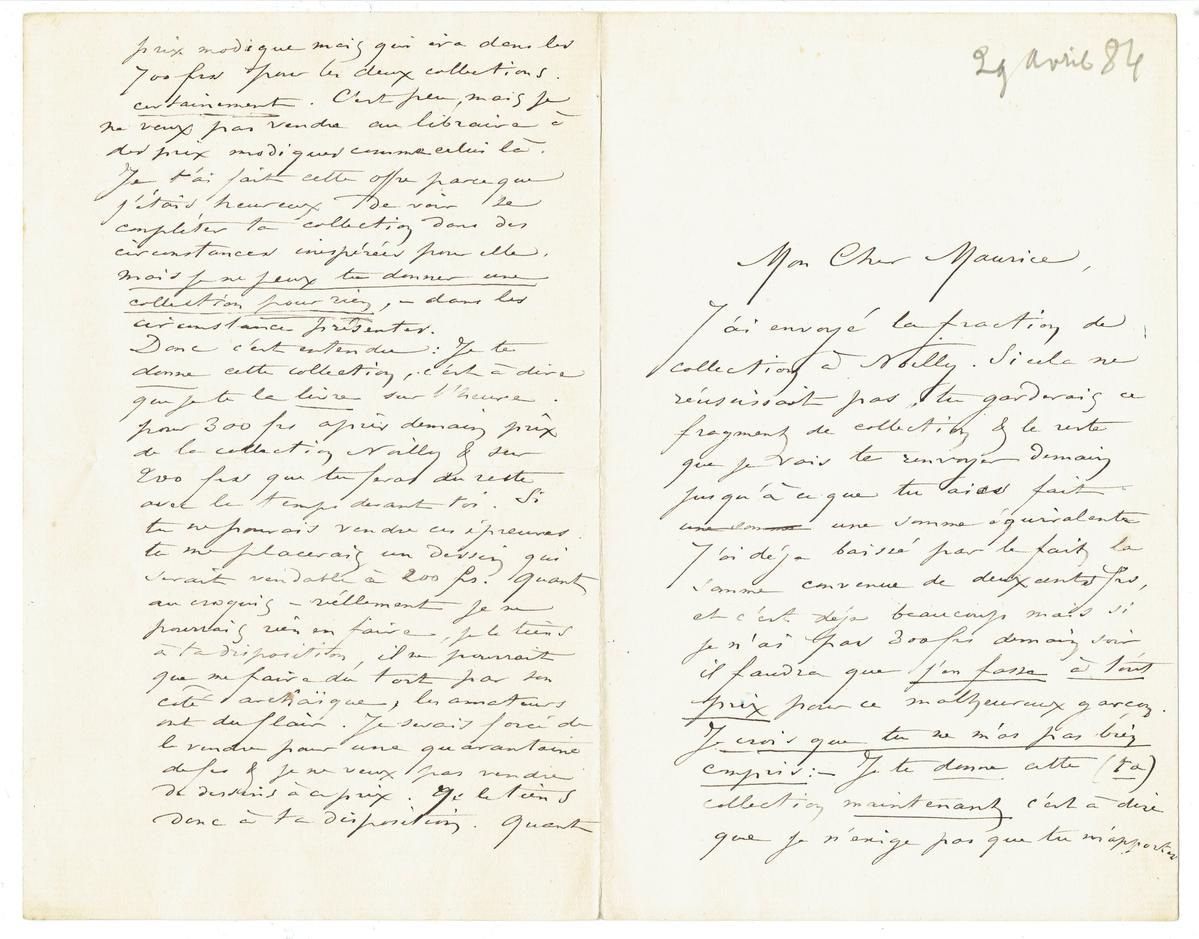 29 Avril 84
Mon Cher Maurice,
J'ai envoyé la fraction de
collection à Noilly. Si cela ne
réussissait pas, tu garderais ce
fragment de collection & le reste
que je vais te renvoyer demain
jusqu'à ce que tu aies fait
une somme une somme équivalente
J'ai déja baissé par le fait la
somme convenue de deux cents frs,
et c'est déja beaucoup mais si
je n'ai pas 300 frs demain soir
il faudra que j'en fasse à tout
prix pour ce malheureux garçon.
Je crois que tu ne m'as pas bien
compris :– Je te donne cette (ta)
collection maintenant c'est à dire
que je n'exige pas que tu m'apportes
prix modique mais qui ira dans les
700 frs pour les deux collections.
certainement. C'est peu, mais je
ne veux pas vendre au libraire à
des prix modiques comme celui là.
Je t'ai fait cette offre parce que
j'étais heureux de voir se
compléter ta collection dans des
circonstances inespérées pour elle.
mais je ne peux te donner une
collection pour rien, – dans les
circonstance présentes.
Donc c'est entendu : Je te
donne cette collection, c'est à dire
que je te la livre sur l'heure.
pour 300 frs après demain prix
de la collection Noilly & sur
200 frs que tu feras du reste
avec le temps devant toi. Si
tu ne pouvais vendre ces épreuves.
tu me placerais un dessin qui
serait vendable à 200 frs. Quant
au croquis – réellement je ne
pourrais rien en faire, je le tiens
à ta disposition, il ne pourrait
que me faire du tort par son
côté archaïque, les amateurs
ont du flair. Je serais forcé de
le vendre pour une quarantaine
de frs & je ne veux pas vendre
de dessins à ce prix. Je le tiens
donc à ta disposition. Quant